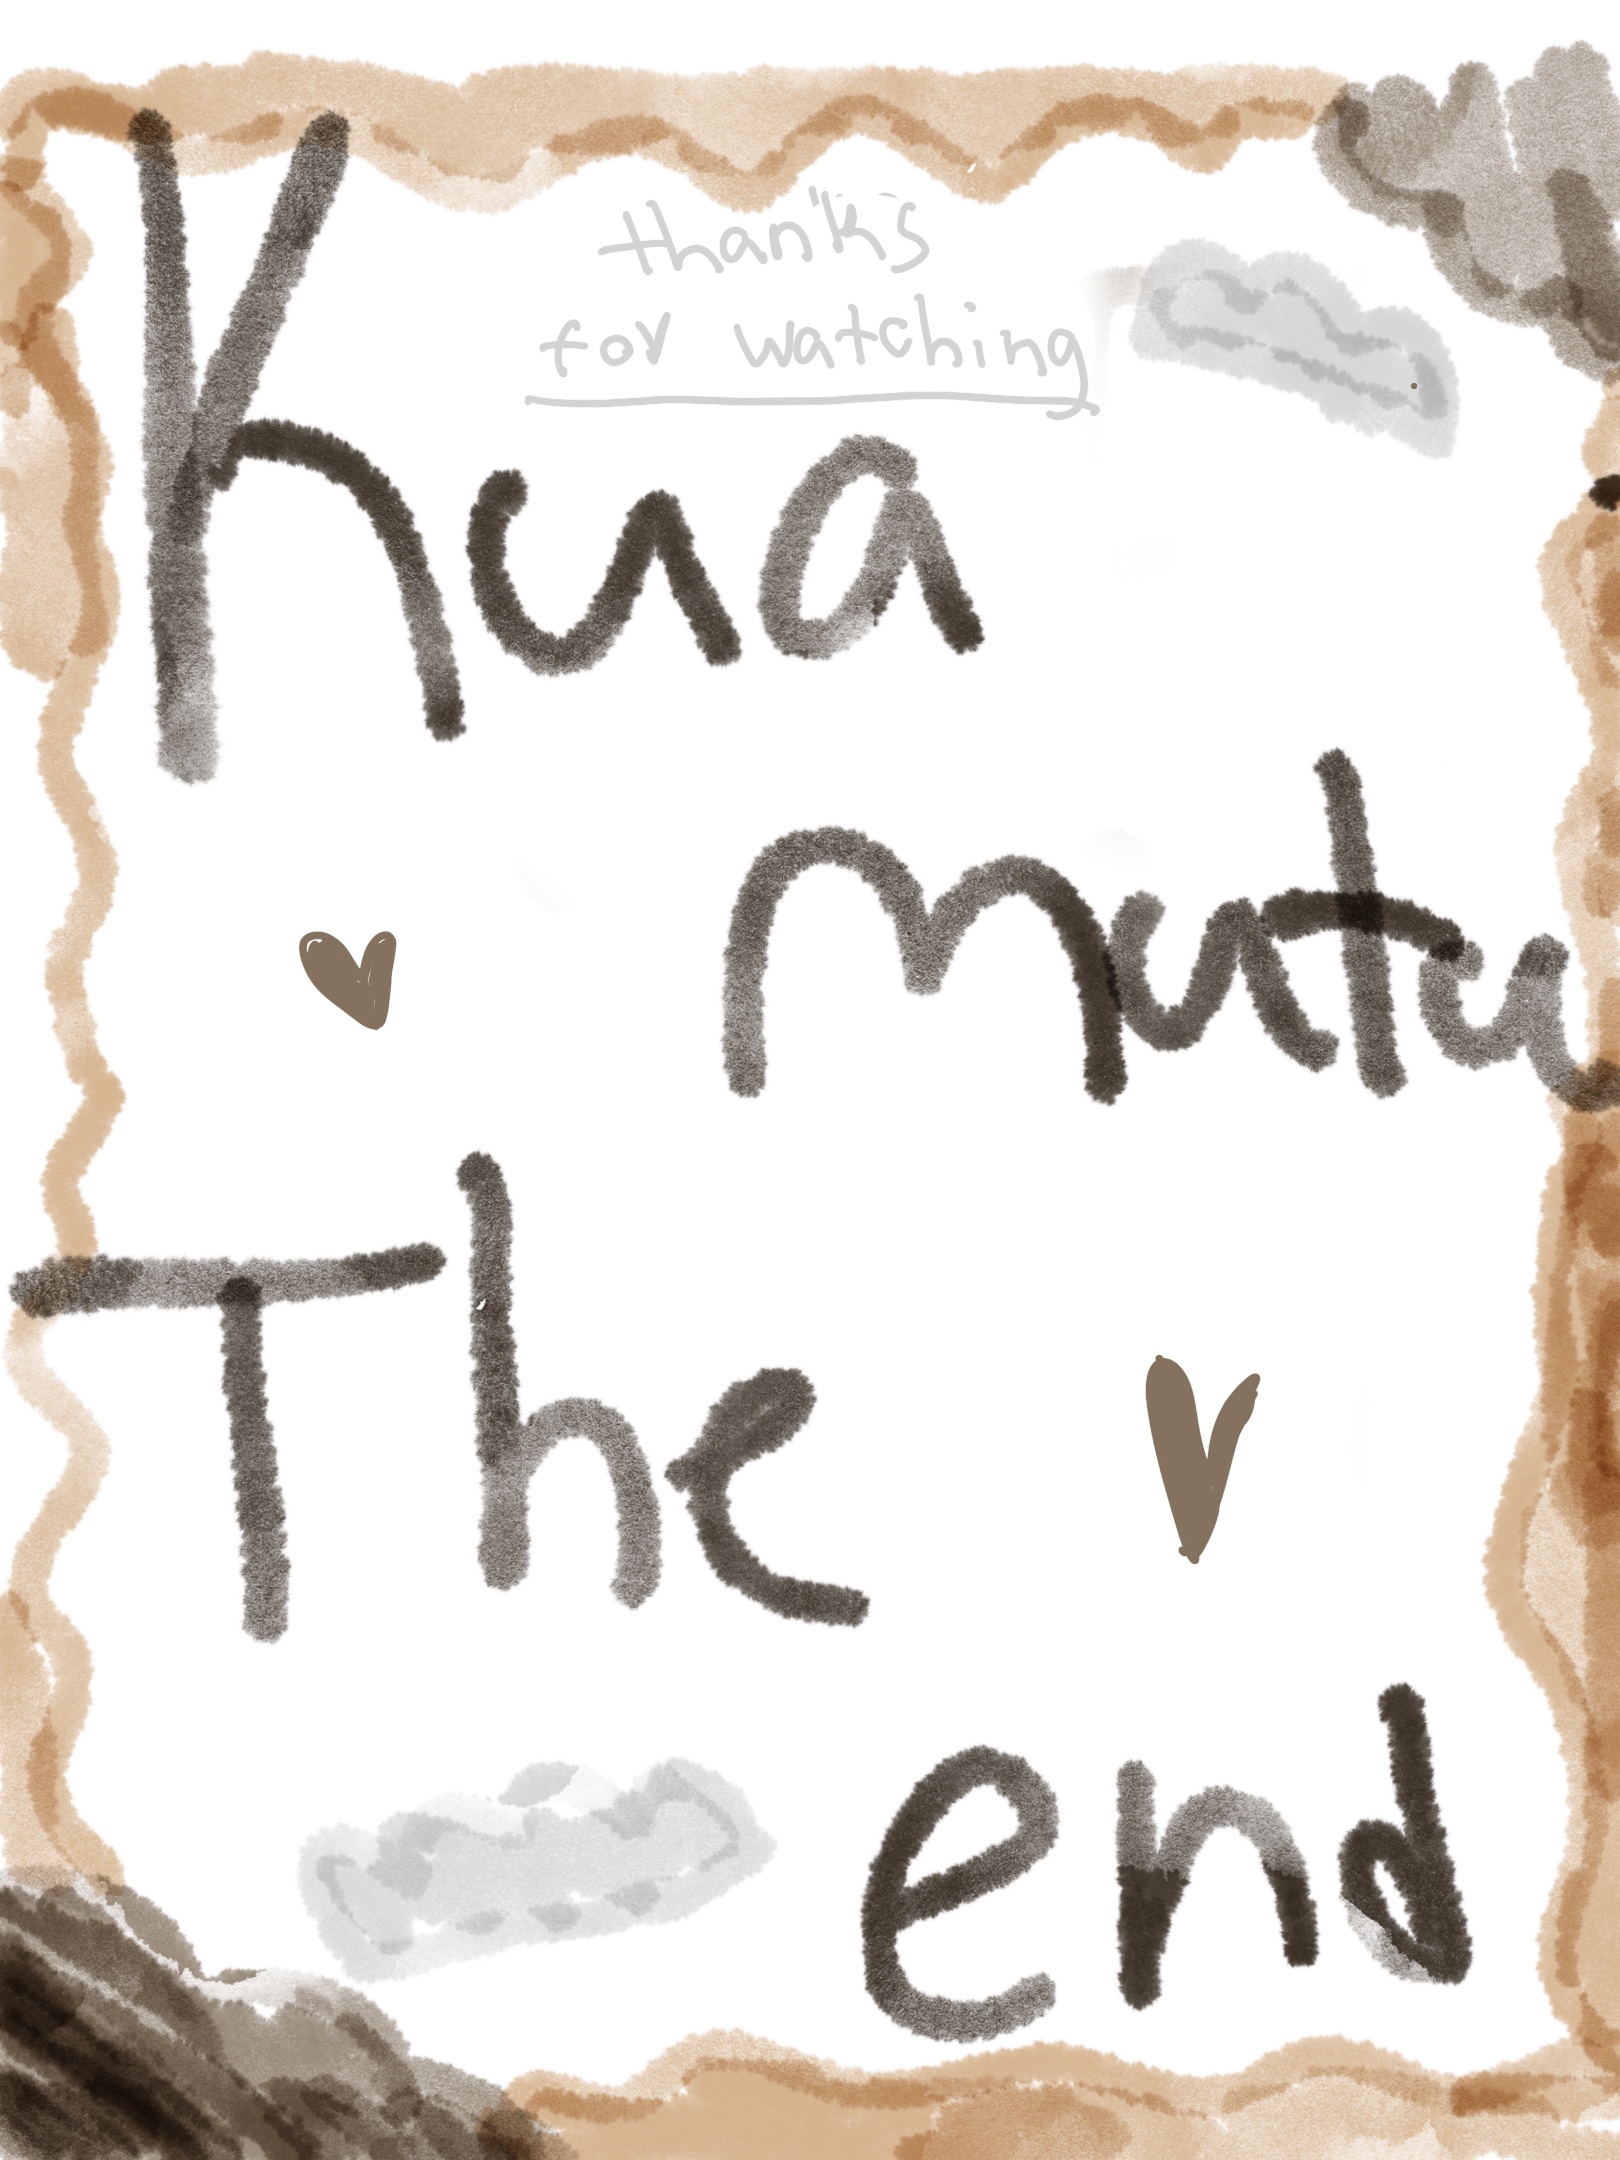 thank's
for watching
Kua
mutu
The
end